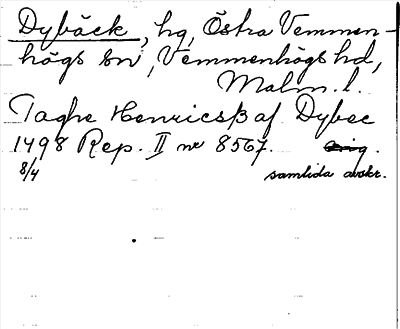 Dybäck, hg, Östra Vemmen-
högs sn, Vemmenhögs hd,
Malm. l.
Taghe Henricsß af Dybec
1498 Rep. II nr 8567. Orig.
8/4 samtida avskr.